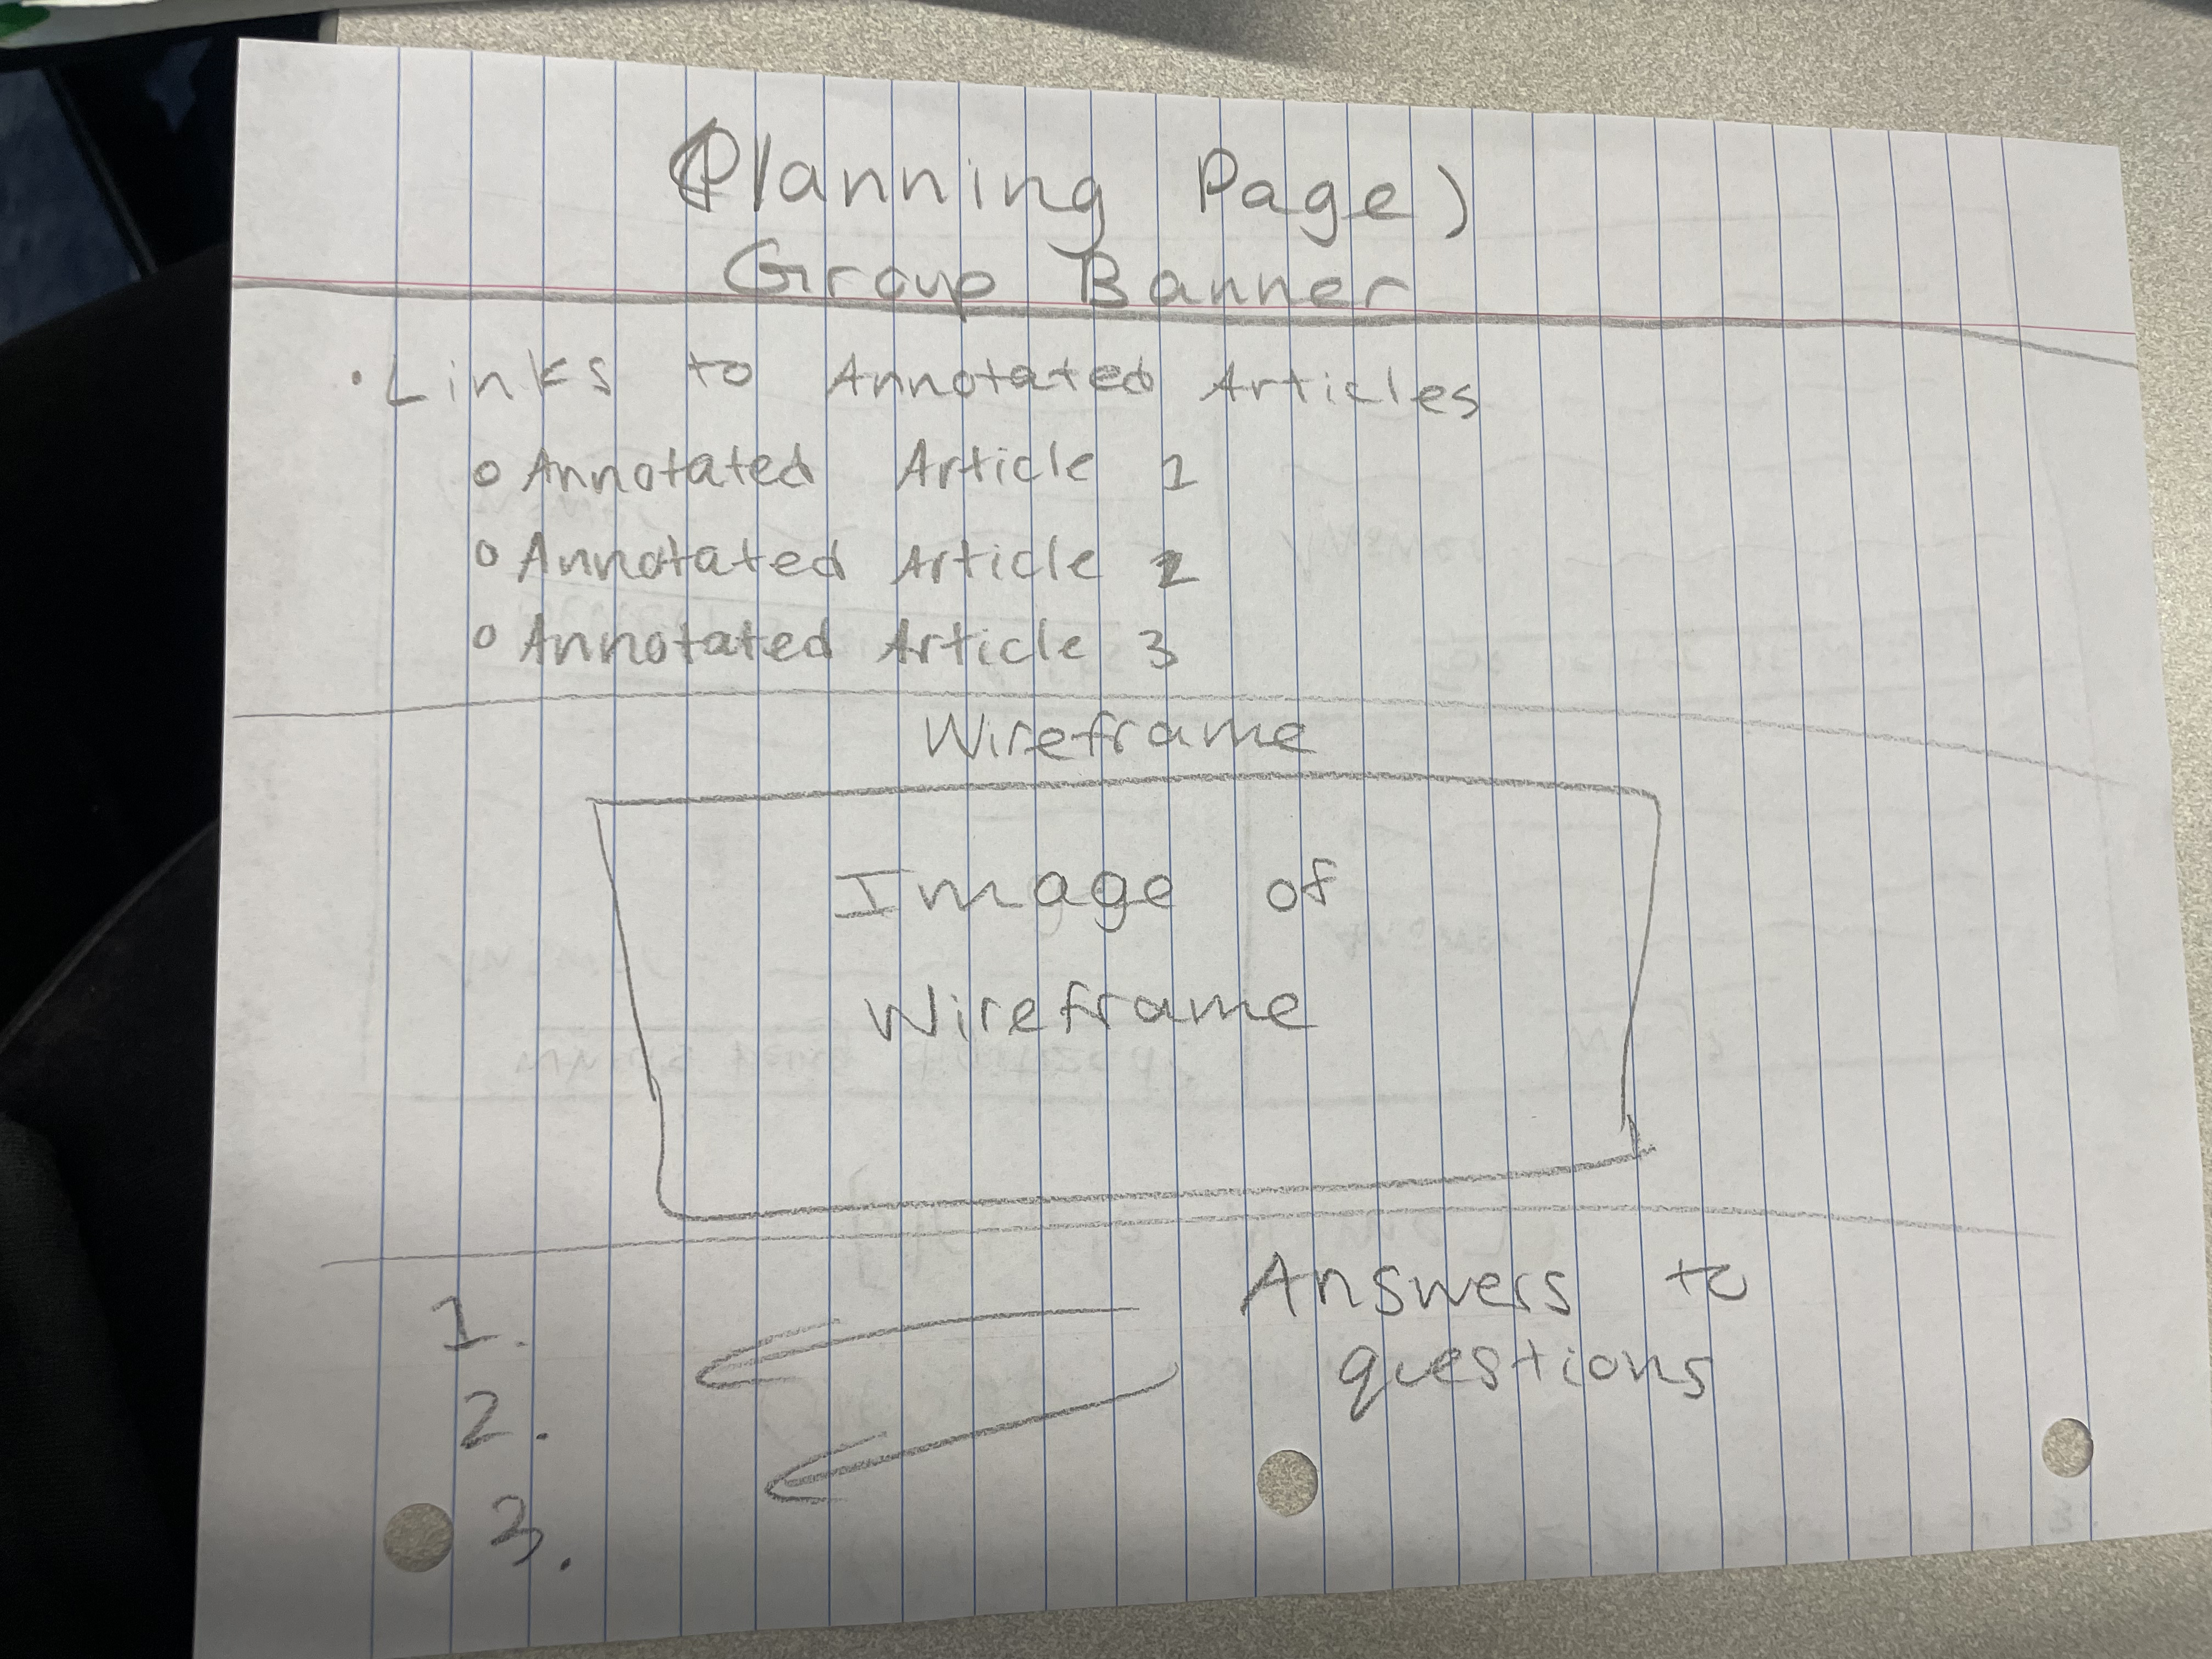 (Planning Page)
Group Banner
• Links to Annotated Articles
o Annotated Article 1
o Annotated Article 2
o Annotated Article 3
Wireframe
Image of
Wireframe
1.
2.
3.
Answers to
questions